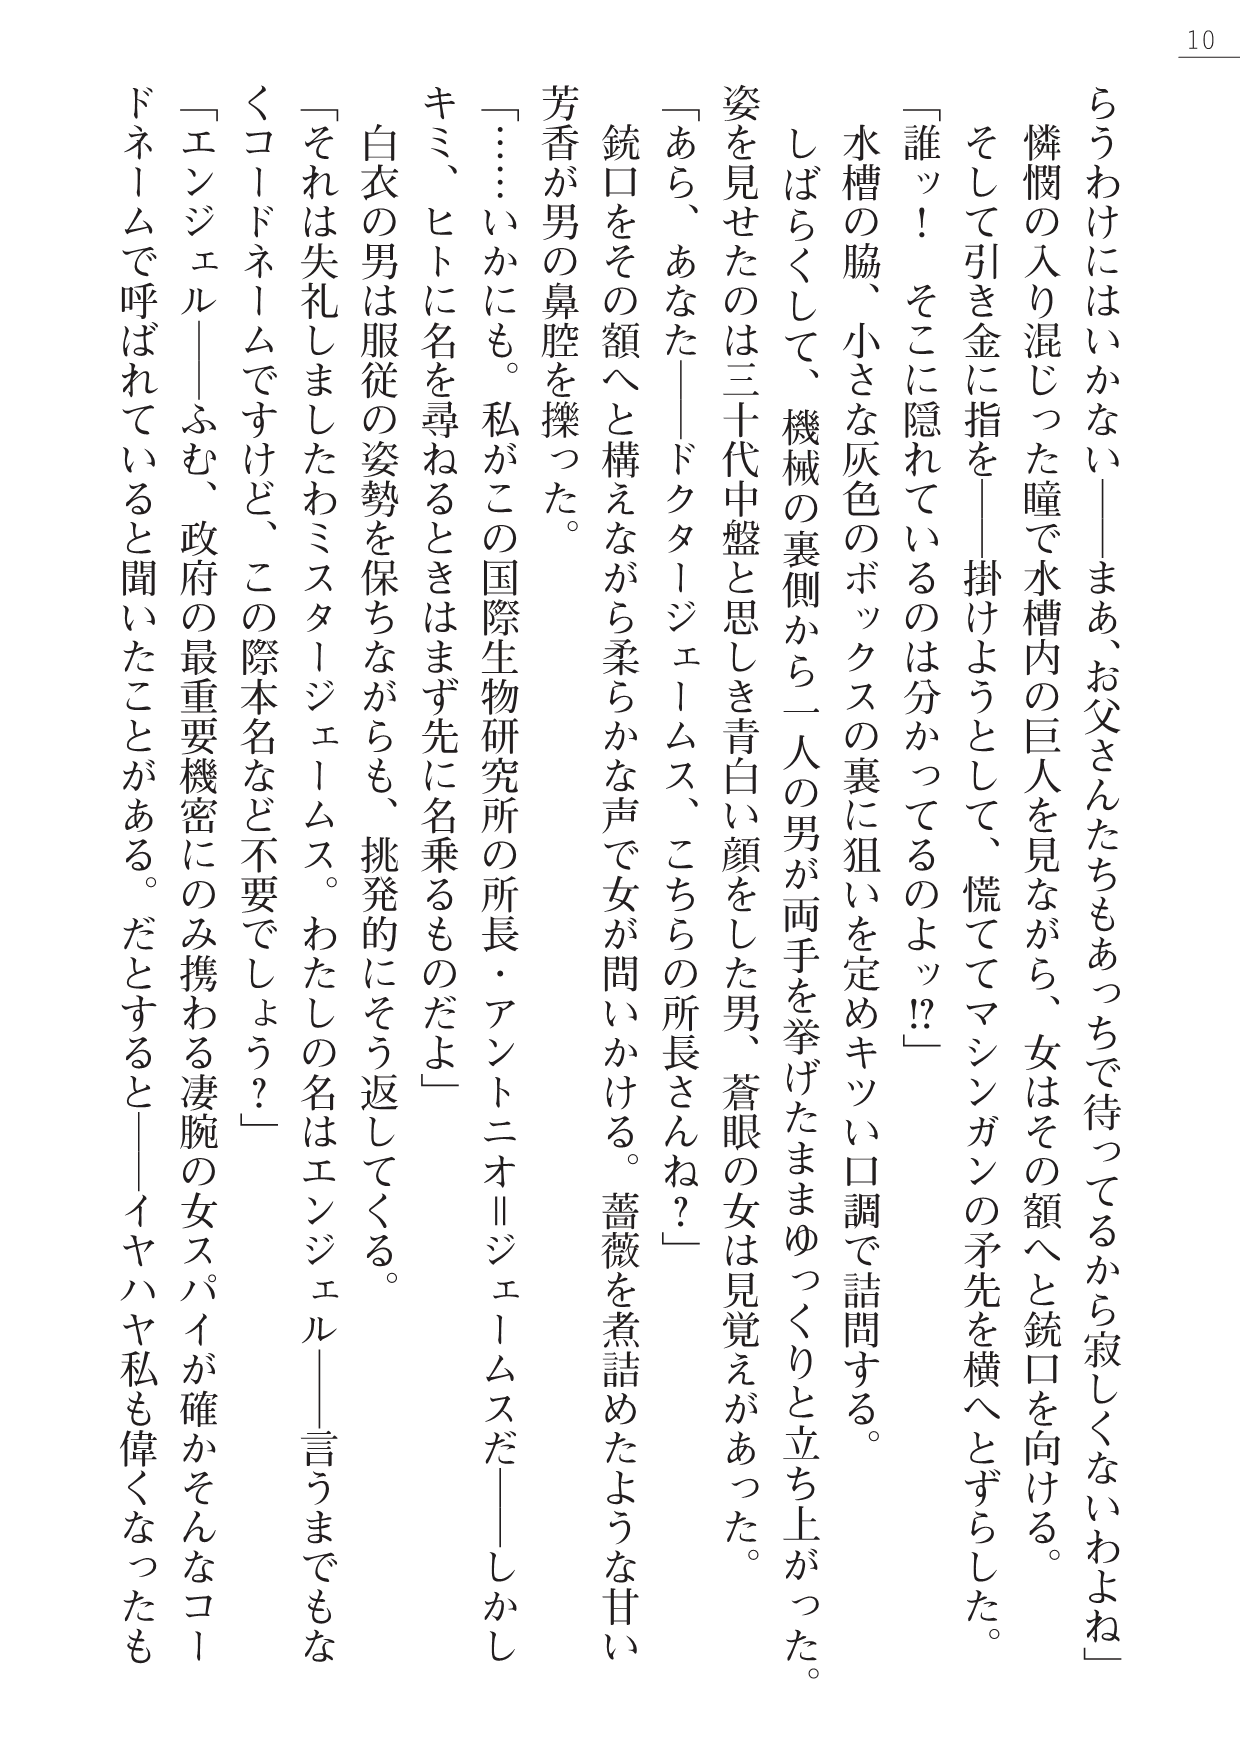 10
らうわけにはいかない――まあ、お父さんたちもあっちで待ってるから寂しくないわよね」
　憐憫の入り混じった瞳で水槽内の巨人を見ながら、女はその額へと銃口を向ける。
　そして引き金に指を――掛けようとして、慌ててマシンガンの矛先を横へとずらした。
「誰ッ！　そこに隠れているのは分かってるのよッ!?」
　水槽の脇、小さな灰色のボックスの裏に狙いを定めキツい口調で詰問する。
　しばらくして、機械の裏側から一人の男が両手を挙げたままゆっくりと立ち上がった。
姿を見せたのは三十代中盤と思しき青白い顔をした男、蒼眼の女は見覚えがあった。
「あら、あなた――ドクタージェームス、こちらの所長さんね？」
　銃口をその額へと構えながら柔らかな声で女が問いかける。薔薇を煮詰めたような甘い
芳香が男の鼻腔を擽った。
「……いかにも。私がこの国際生物研究所の所長・アントニオ＝ジェームスだ――しかし
キミ、ヒトに名を尋ねるときはまず先に名乗るものだよ」
　白衣の男は服従の姿勢を保ちながらも、挑発的にそう返してくる。
「それは失礼しましたわミスタージェームス。わたしの名はエンジェル――言うまでもな
くコードネームですけど、この際本名など不要でしょう？」
「エンジェル――ふむ、政府の最重要機密にのみ携わる凄腕の女スパイが確かそんなコー
ドネームで呼ばれていると聞いたことがある。だとすると――イヤハヤ私も偉くなったも